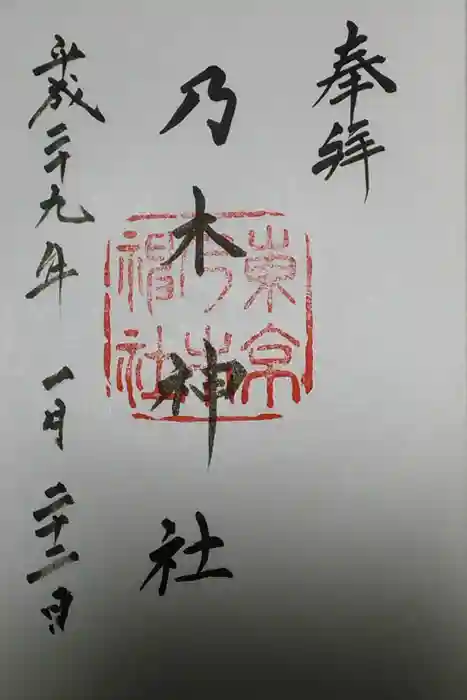 奉拝
乃木神社
東京
乃木
神社
平成二十九年 一月二十二日